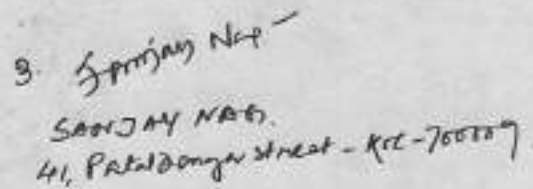 3. Sanjay Nag
SANJAY NAG.
41, Pataldanga Street - Kol-700009